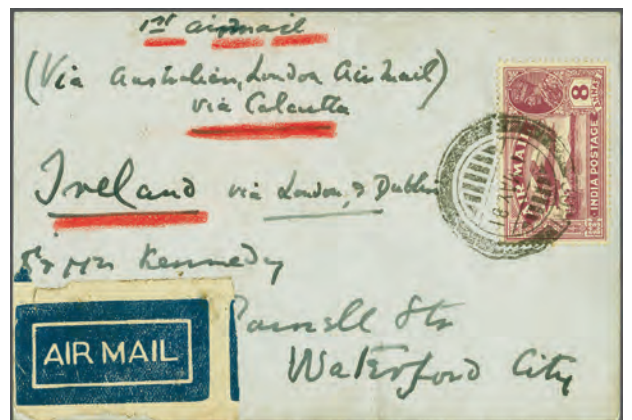 1st airmail
(Via Australian, London Air Mail)
via Calcutta
Ireland via London, & Dublin
Kennedy
Parnell Str
Waterford City
AIR MAIL
8
ANNAS
AIR MAIL
INDIA POSTAGE